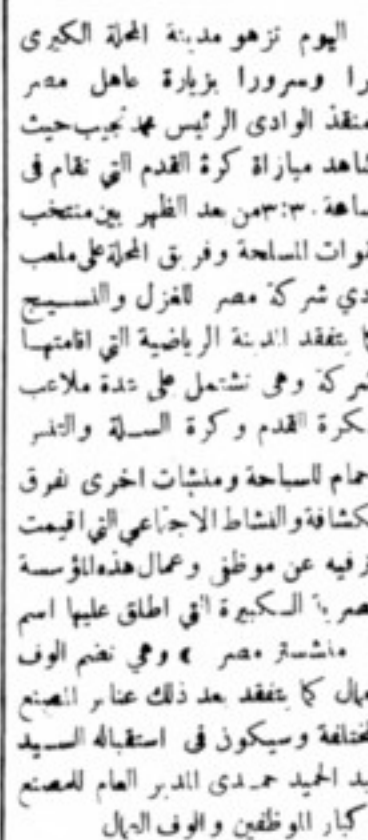 اليوم تزهو مدينة المحلة الكبرى
را وسرورا بزيارة عاهل مصر
منقذ الوادى الرئيس محمد نجيب حيث
شاهد مباراة كرة القدم التي تقام فى
ساعة ٣:٣٠ من بعد الظهر بين منتخب
قوات المسلحة وفريق المحلة على ملعب
دي شركة مصر للغزل والنسيج
كا يتفقد المدينة الرياضية التي اقامتها
شركة وهى تشتمل على عدة ملاعب
كرة القدم وكرة السلة والتنس
حمام للسباحة ومنشات اخرى لفرق
كشافة والنشاط الاجتماعي التي اقيمت
ترفيه عن موظفى وعمال هذه المؤسسة
صرية الكبيرة التي اطلق عليها اسم
مانشستر مصر » وهي تضم الوف
مال كما يتفقد بعد ذلك عنابر المصنع
لمختلفة وسيكون فى استقباله السيد
بد الحميد حمدى المدير العام للمصنع
كبار الموظفين والوف العمال